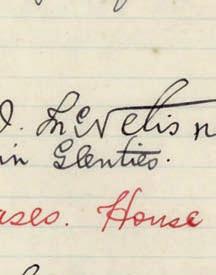 J. McNelis n
in Glenties.
ases. House